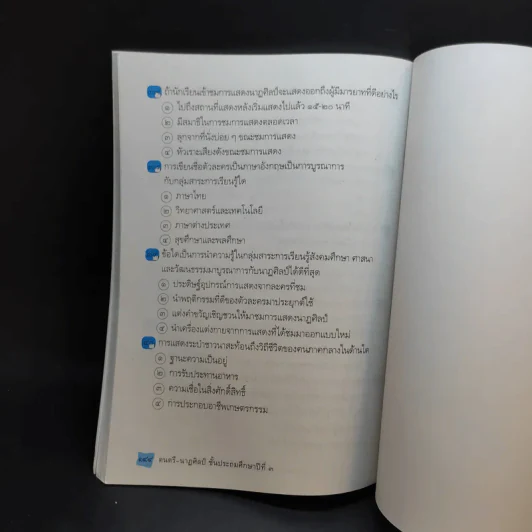 ถ้านักเรียนเข้าชมการแสดงนาฏศิลป์จะแสดงออกถึงผู้มีมารยาทที่ดีอย่างไร
๑ ไปถึงสถานที่แสดงหลังเริ่มแสดงไปแล้ว ๑๕-๒๐ นาที
๒ มีสมาธิในการชมการแสดงตลอดเวลา
๓ ลุกจากที่นั่งบ่อย ๆ ขณะชมการแสดง
๔ หัวเราะเสียงดังขณะชมการแสดง
การเขียนชื่อตัวละครเป็นภาษาอังกฤษเป็นการบูรณาการ
กับกลุ่มสาระการเรียนรู้ใด
๑ ภาษาไทย
๒ วิทยาศาสตร์และเทคโนโลยี
๓ ภาษาต่างประเทศ
๔ สุขศึกษาและพลศึกษา
ข้อใดเป็นการนำความรู้ในกลุ่มสาระการเรียนรู้สังคมศึกษา ศาสนา
และวัฒนธรรมมาบูรณาการกับนาฏศิลป์ได้ดีที่สุด
๑ ประดิษฐ์อุปกรณ์การแสดงจากละครที่ชม
๒ นำพฤติกรรมที่ดีของตัวละครมาประยุกต์ใช้
๓ แต่งคำขวัญเชิญชวนให้มาชมการแสดงนาฏศิลป์
๔ นำเครื่องแต่งกายจากการแสดงที่ได้ชมมาออกแบบใหม่
การแสดงระบำชาวนาสะท้อนถึงวิถีชีวิตของคนภาคกลางในด้านใด
๑ ฐานะความเป็นอยู่
๒ การรับประทานอาหาร
๓ ความเชื่อในสิ่งศักดิ์สิทธิ์
๔ การประกอบอาชีพเกษตรกรรม
ดนตรี-นาฏศิลป์ ชั้นประถมศึกษาปีที่ ๓